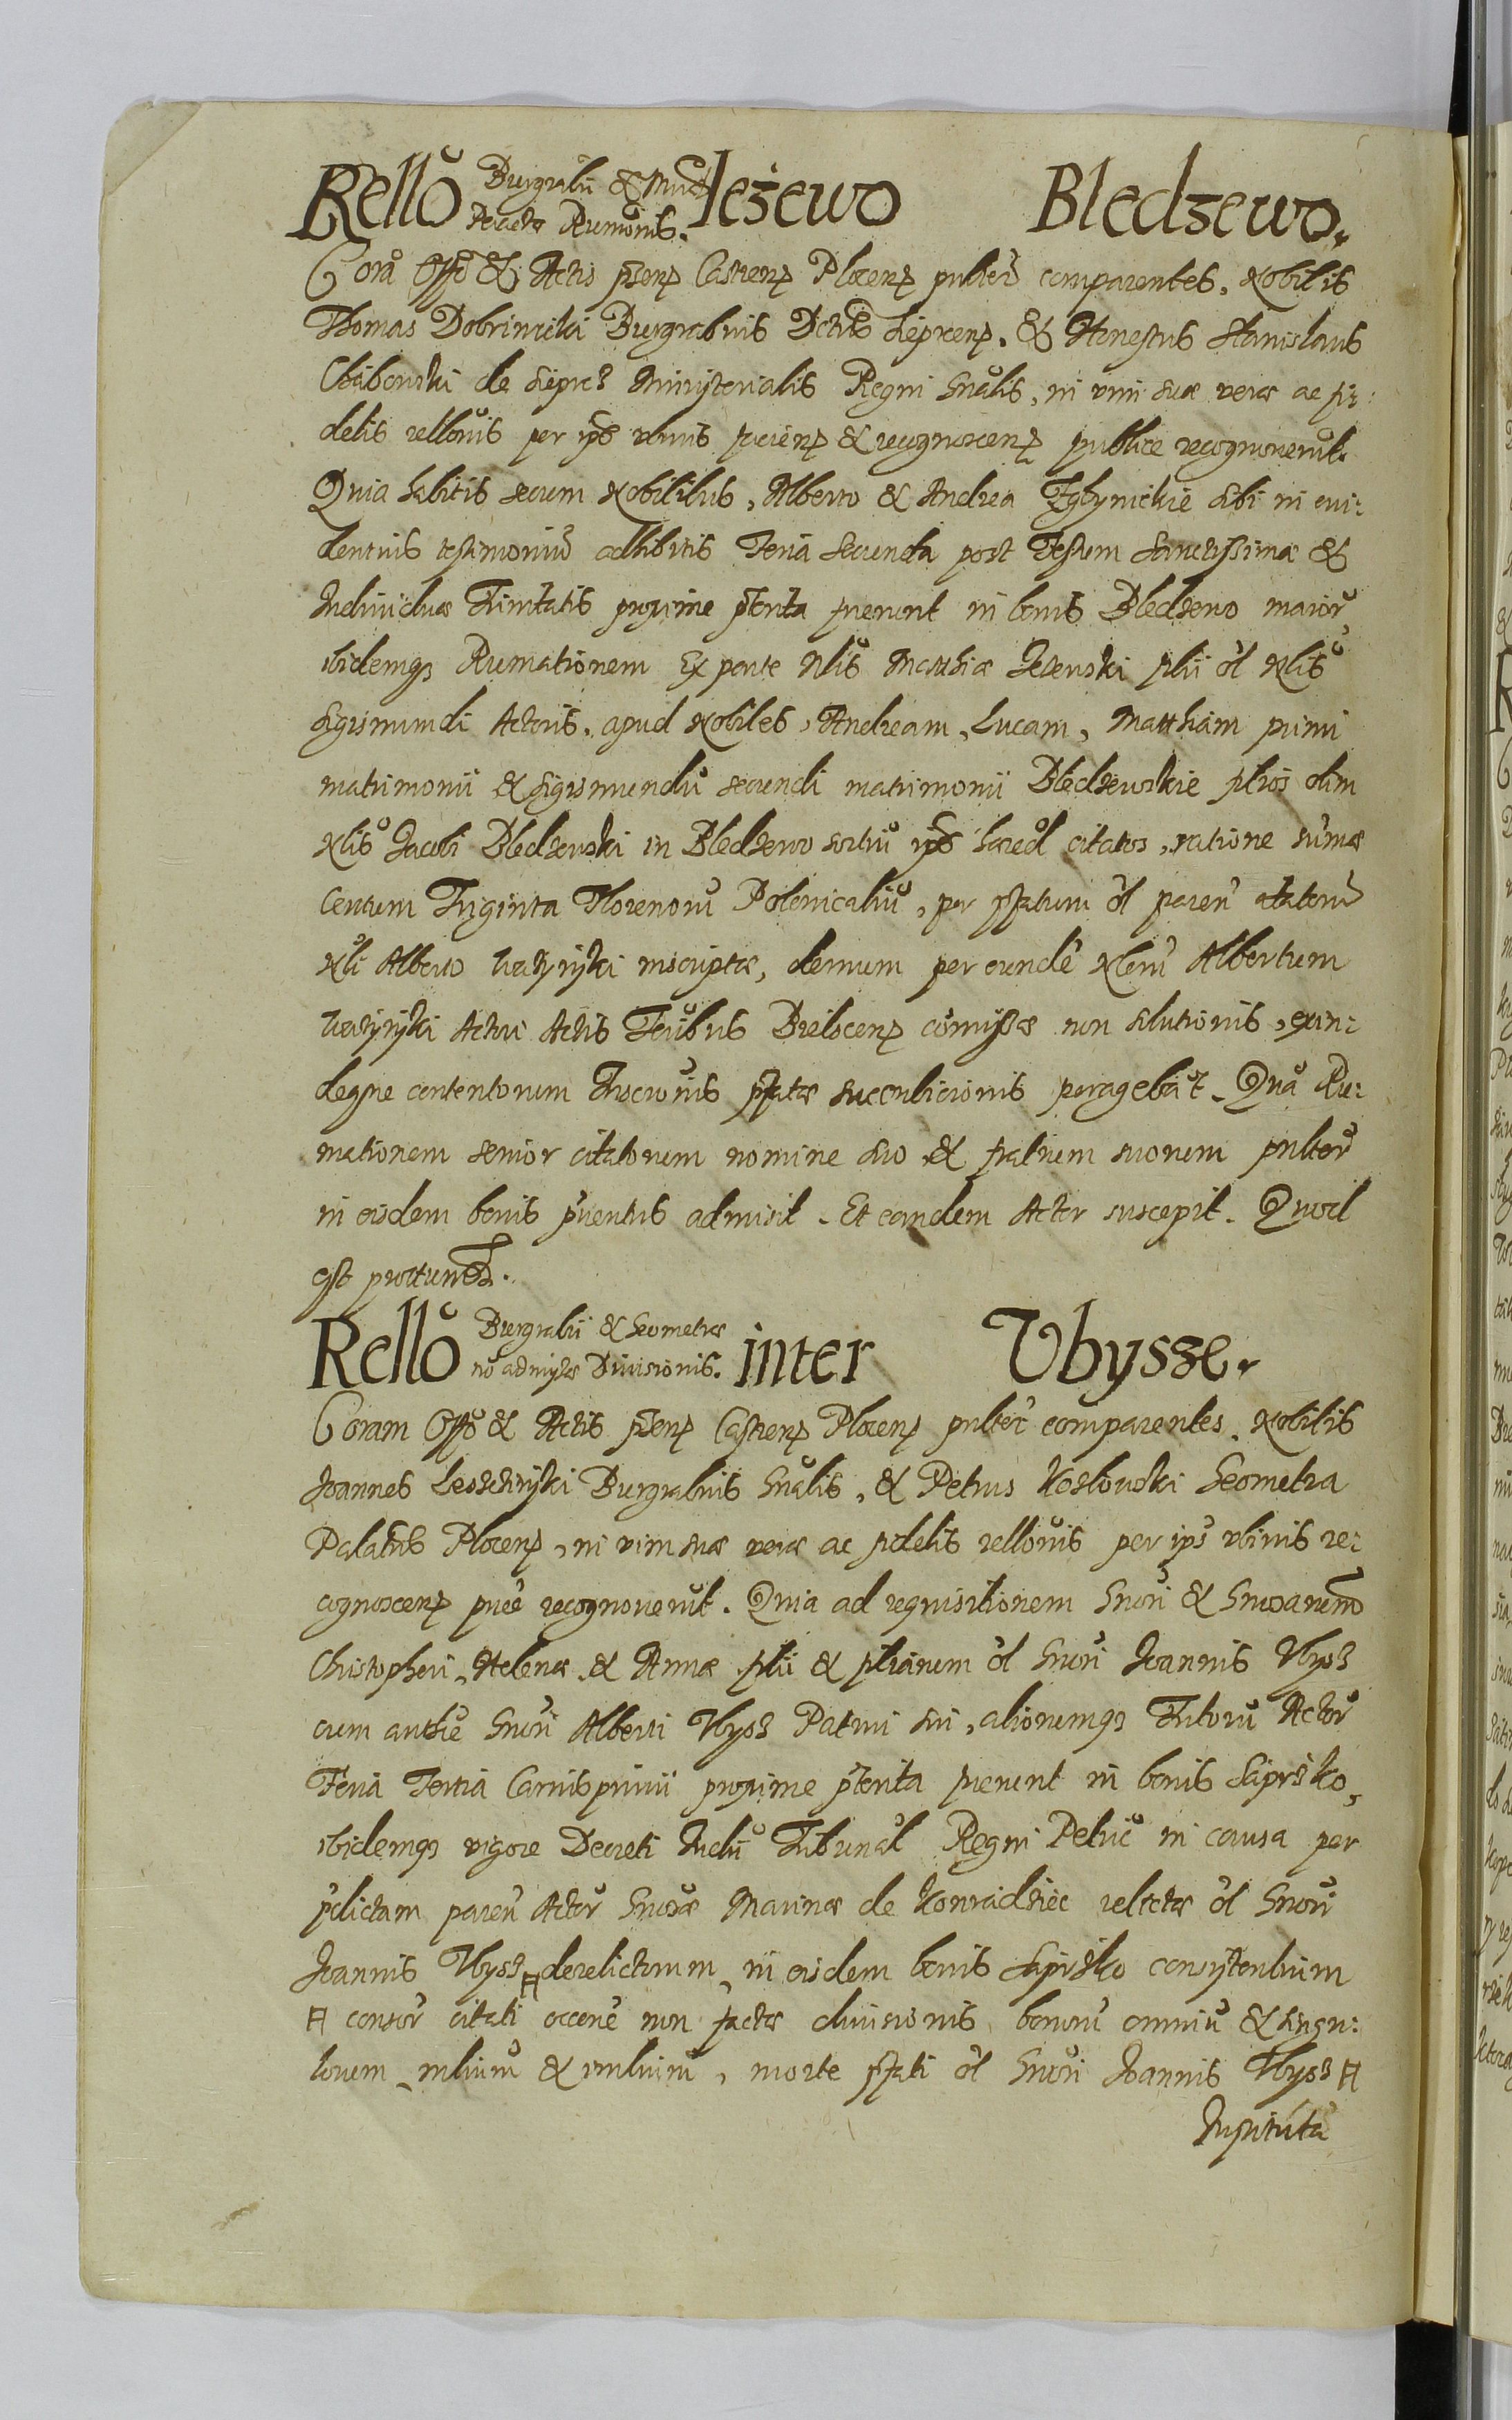 Rellō Burgrabii & Minis Ieżewo Bledzewo.
Peractæ Rumōnis.
Corā Offō & Actis p̄sen Castren Plocen pūlter comparentes, Nobilis
Thomas Dobrinicki Burgrabius Dictus Siepren. & Honestus Stanislaus
Chabowski de Sieprcz Ministerialis Regni Gnālis, in vim suæ veræ ac fi:
delis rellōnis per ip̄s vōnis facien & recognoscen publice recognoverūt.
Quia habitis secum Nobilibus, Alberto & Andrea sibi in evi:
dentius testimoniū adhibitis Feria Secunda post Festum Sanctissimæ &
Individuæ Trinitatis proxime p̄terita fuerunt in bonis Bledzewo maior,
ibidemq₃ Rumationem Ex parte Nlīs Matthiæ Jezewski filii ōl Nlīs
Sigismundi Actoris, apud Nobiles, Andream, Lucam, Matthiam primi
matrimonii & Sigismundū secundi matrimonii Bledzewskie filios olim
Nlīs Jacobi Bledzewski in Bledzewo sortiū ip̄s hæred citatos, ratione sūmæ
Centum Triginta Florenorū Polonicaliū, per p̄fatum ōl paren̄ citatorū
Nlī Alberto inscriptæ, demum per eundē Nlēm Albertum
Actori Actis Trībus Bielscen cōmissæ non solutionis, exin:
deqne contentorum Inscrōnis p̄fatæ succubicionis peragebāt. Quā Ru:
mationem senior citatorum nomine suo & fratrum suorum pūlter
in eisdem bonis p̄ventus admisit. Et eandem Actor suscepit. Quod
est
Rellō Burgrabii & Geometræ inter Vbysze.
nō admissæ Divisionis.
Coram Offō & Actis p̄sen Castren Plocen pūlter comparentes. Nobilis
Joannes Leszczinski Burgrabius Gnālis, & Petrus Kozlowski Geometra
Palatūs Plocen, in vim suæ veræ ac fidelis rellōnis per ip̄s vōnis re:
cognoscen pūce recognoverūt. Quia ad requisitionem Gnōsi & Gnosarum
Christopheri, Helenæ & Annæ filii & filiarum ōl Gnōsi Joannis Vbysz
cum authē Gnōsi Alberti Vbysz Patrui sui, aliorumq₃ Tutorū Actor
Feria Tertia Carnisprivii proxime p̄terita fuerunt in bonis
ibidemq₃ vigore Decreti Tribunal Regni Petric in causa per
p̄dictam paren̄ Actor Gnosæ Marinæ de Konradziec relictæ ōl Gnōsi
Joannis Vbysz # derelictorum, in eisdem bonis consistentium
# consor citati occne non factæ divisionis bonorū omniū & singu:
lorum, mlium & imlium, morte p̄fati ōl Gnōsi Joannis Vbysz #
Instituta